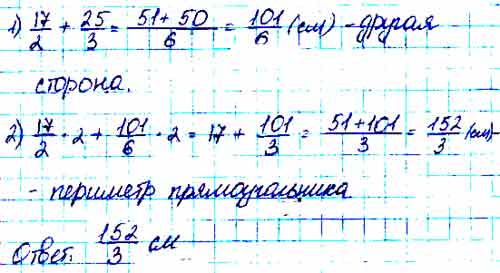 1) 17/2 + 25/3 = 51+50/6 = 101/6 (см) - другая
сторона.
2) 17/2 · 2 + 101/6 · 2 = 17 + 101/3 = 51+101/3 = 152/3 (см) -
- периметр прямоугольника.
Ответ: 152/3 см